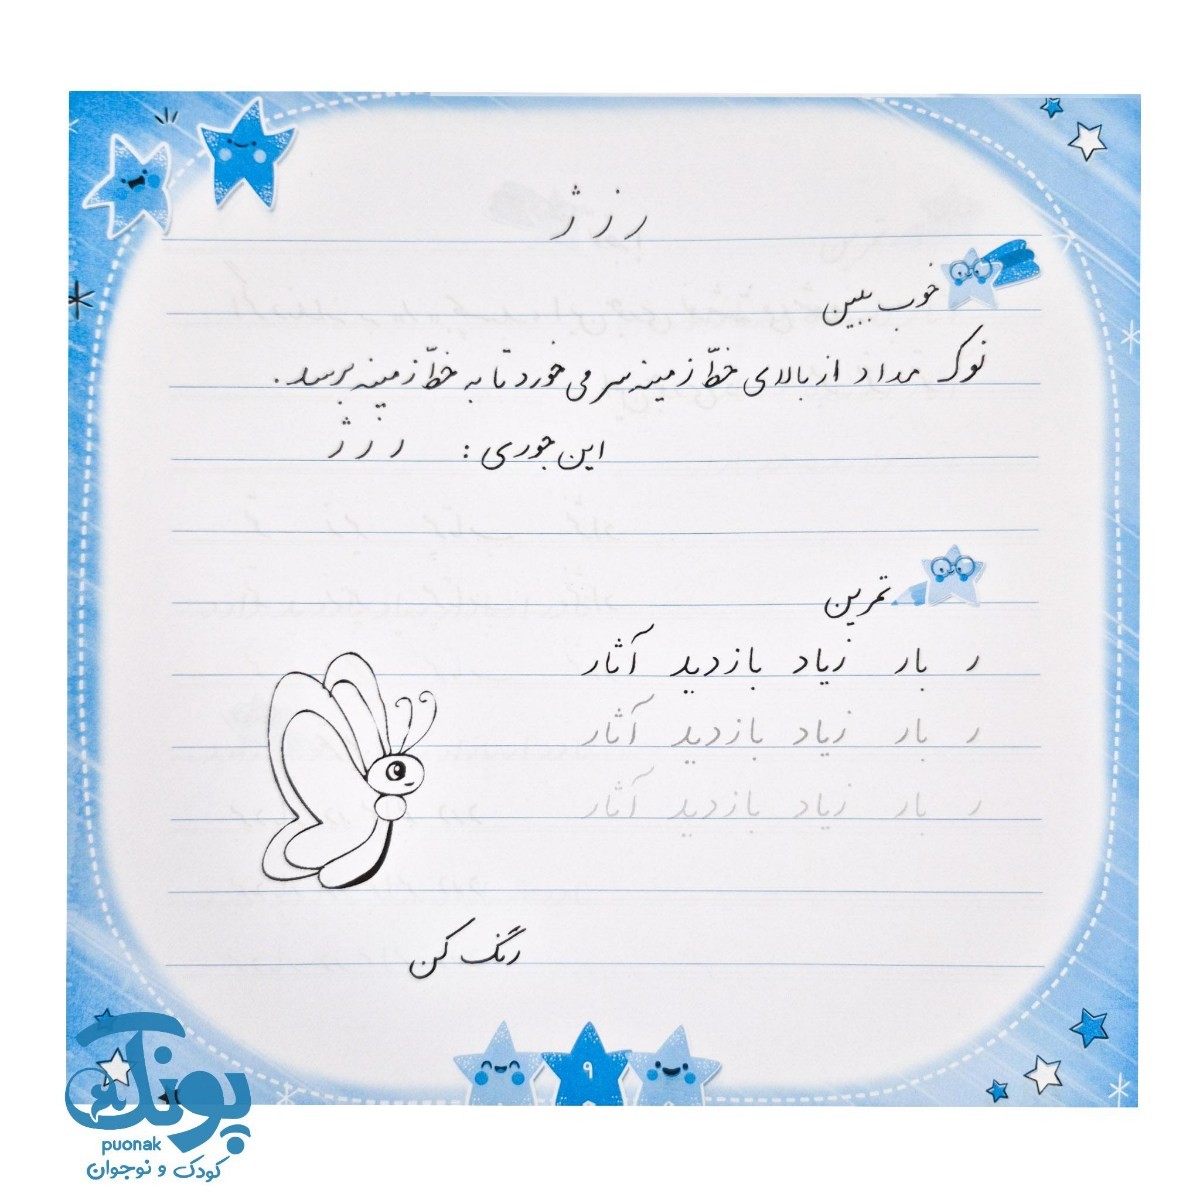 ر ز ژ
خوب ببین
نوک مداد از بالای خطّ زمینه سر می خورد تا به خطّ زمینه برسد.
این جوری : ر ز ژ
تمرین
ر بار زیاد بازدید آثار
ر بار زیاد بازدید آثار
ر بار زیاد بازدید آثار
رنگ کن
۹
پونک
puonak
کودک و نوجوان